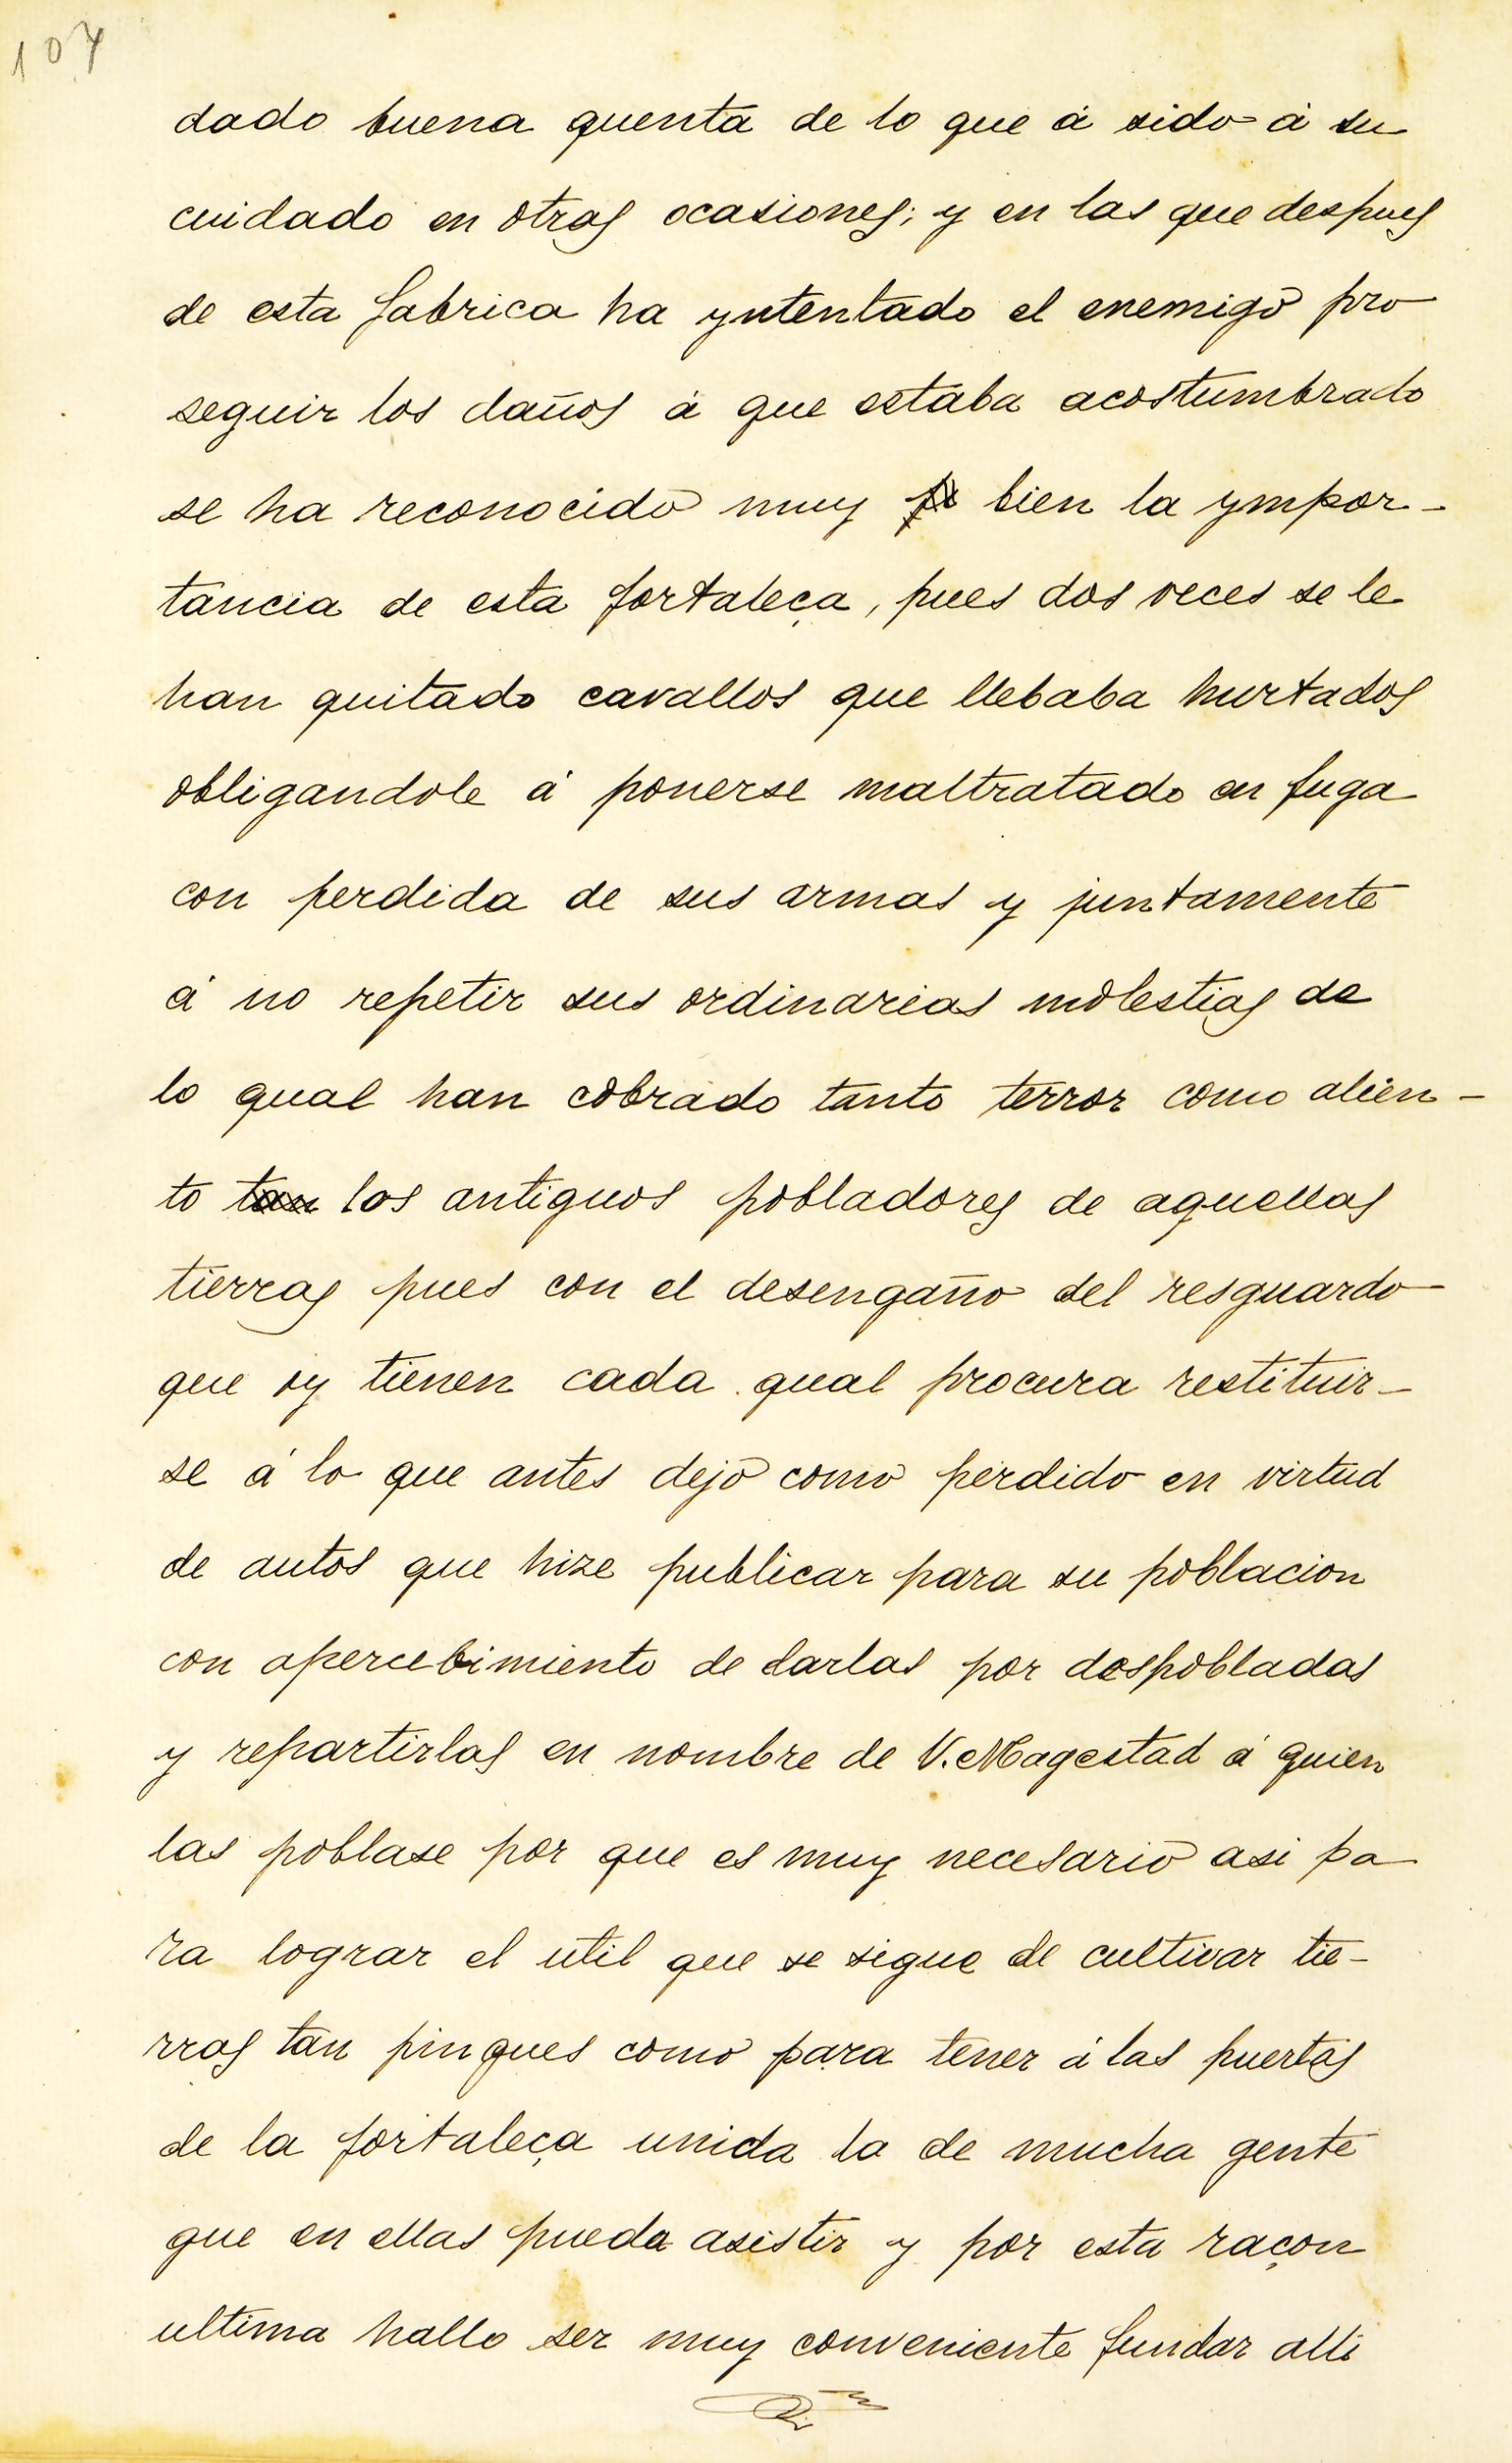 107
dado buena quenta de lo que á sido á su
cuidado en otras ocasiones; y en las que despues
de esta fabrica ha yntentado el enemigo pro
seguir los daños á que estaba acostumbrado
se ha reconocido muy bien la ympor-
tancia de esta fortaleça, pues dos veces se le
han quitado cavallos que llebaba hurtados
obligandole á ponerse maltratado en fuga
con perdida de sus armas y juntamente
á no repetir sus ordinarias molestias de
lo qual han cobrado tanto terror como alien-
to tan los antiguos pobladores de aquellas
tierras pues con el desengaño del resguardo
que oy tienen cada qual procura restituir-
se á lo que antes dejo como perdido en virtud
de autos que hize publicar para su poblacion
con apercebimiento de darlas por despobladas
y repartirlas en nombre de V. Magestad á quien
las poblase por que es muy necesario asi pa
ra lograr el util que se sigue de cultivar tie-
rras tan pingues como para tener á las puertas
de la fortaleça unida la de mucha gente
que en ellas pueda asistir y por esta raçon
ultima hallo ser muy conveniente fundar alli